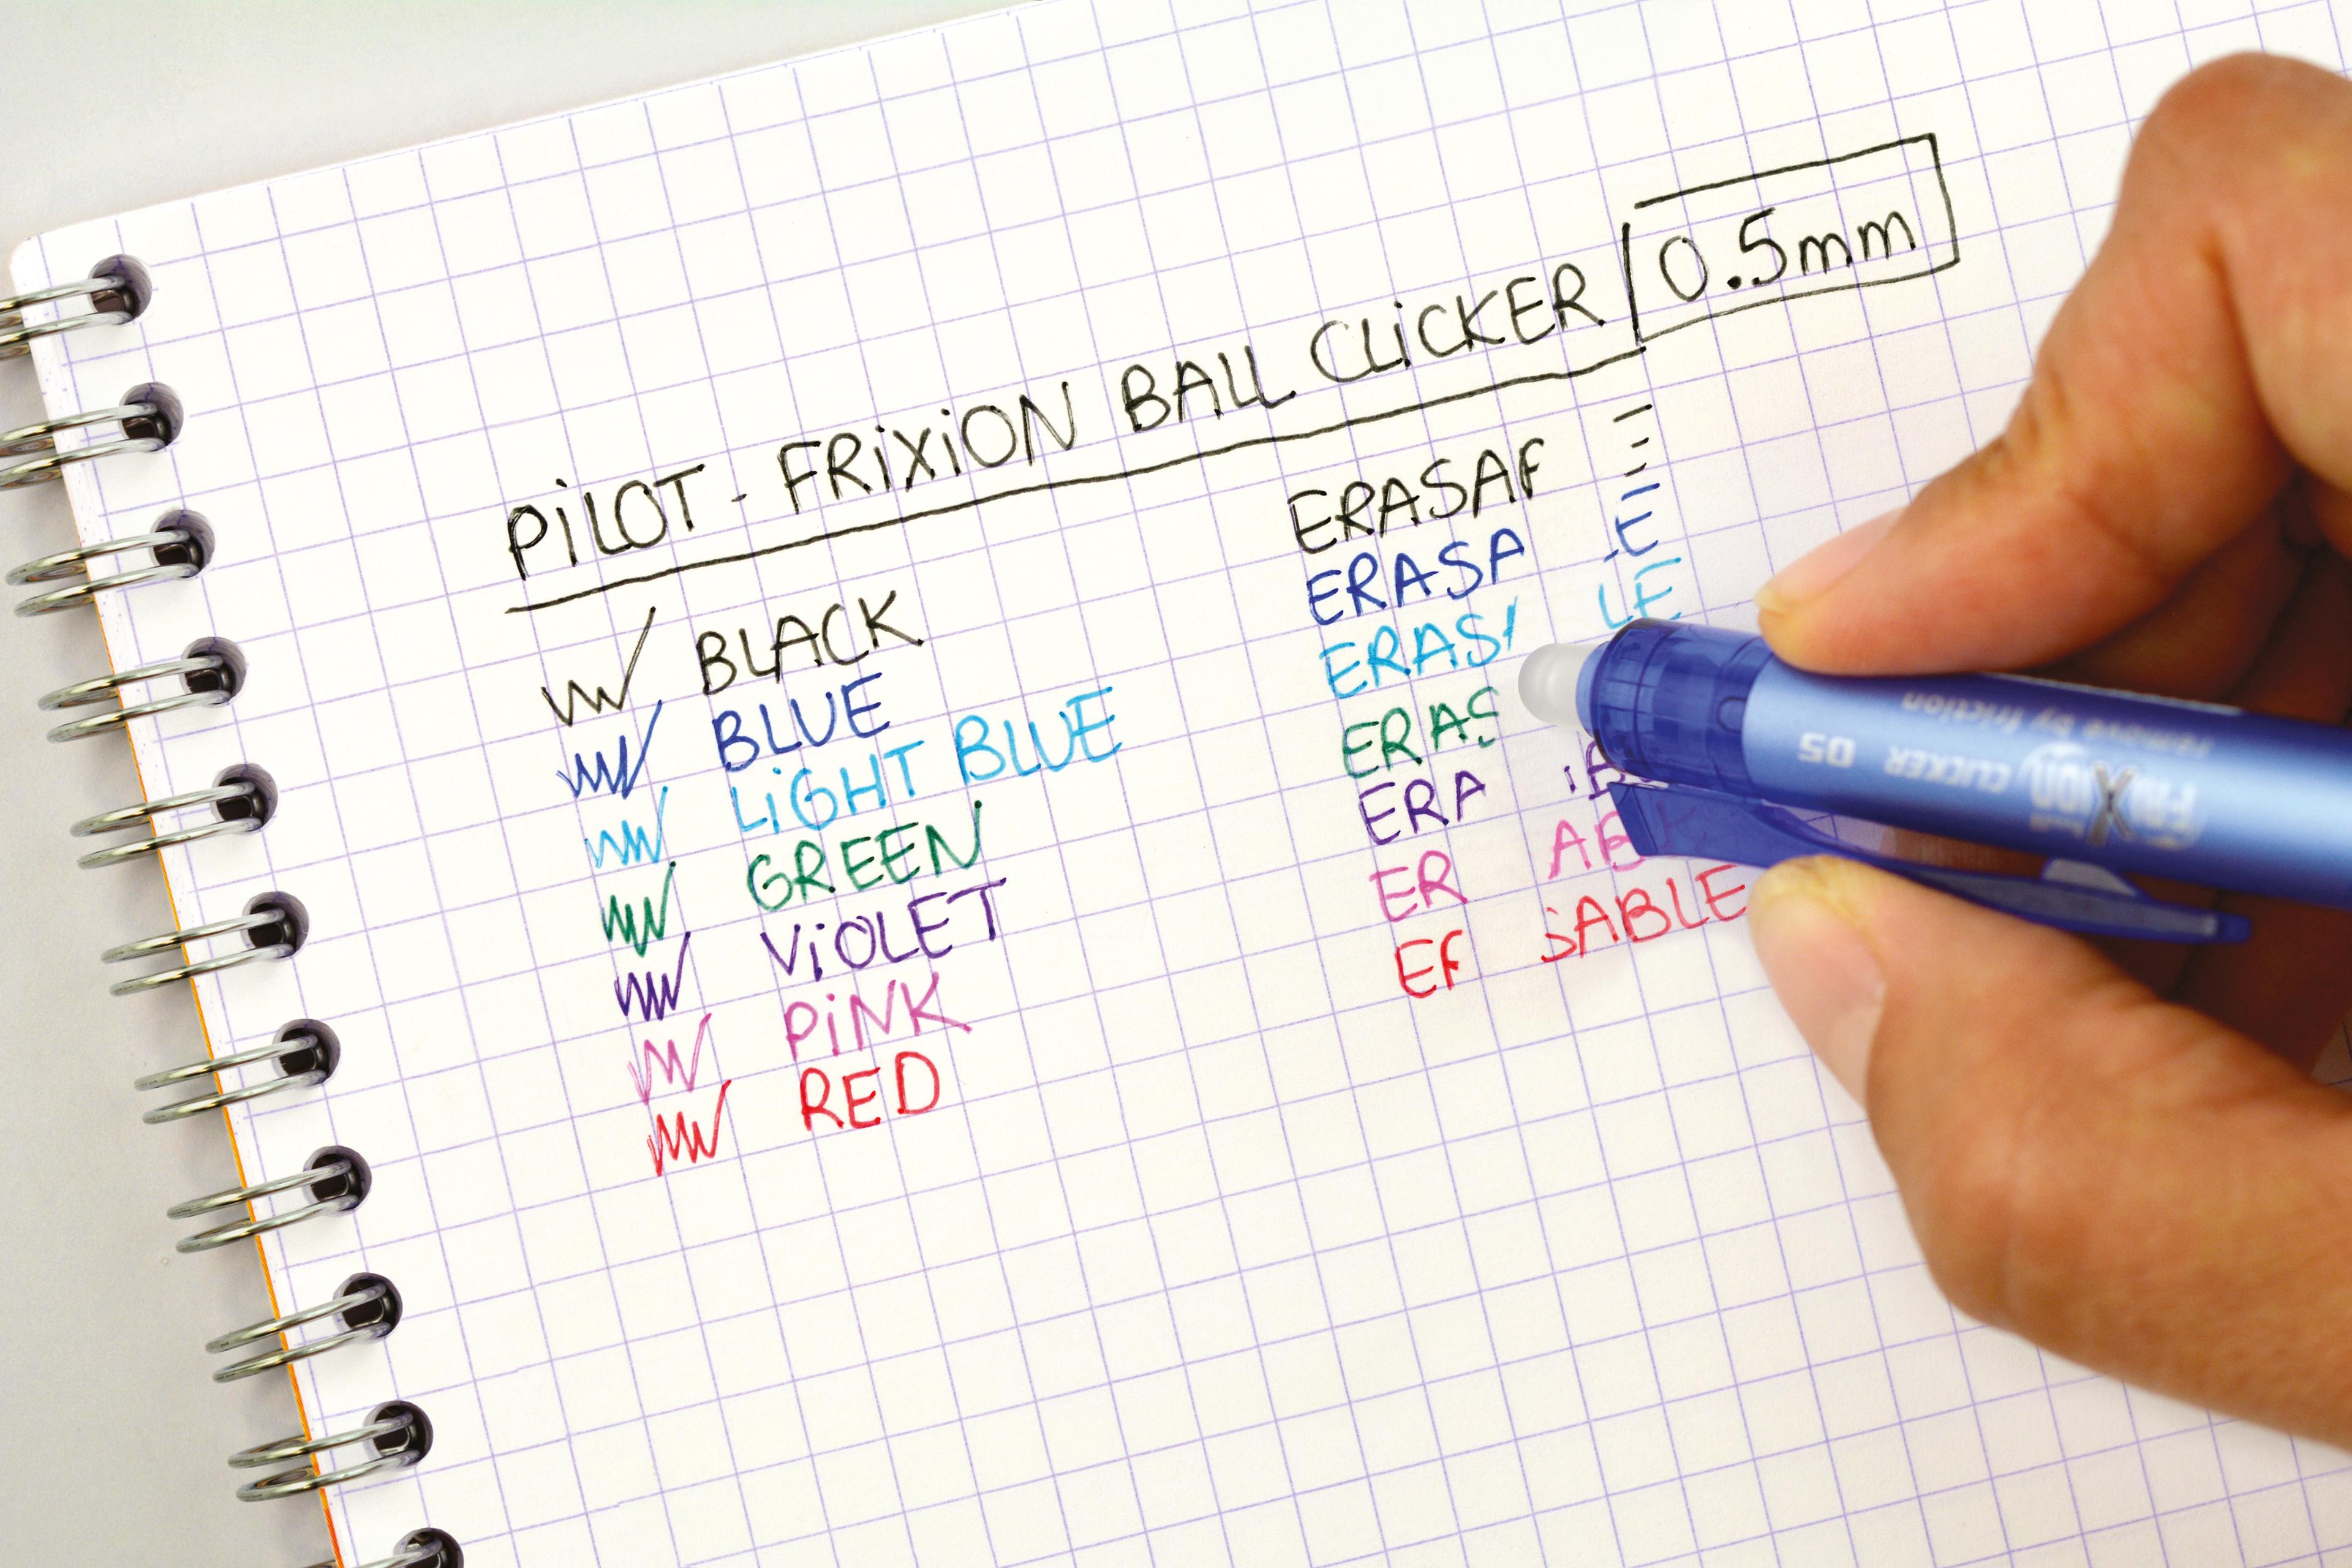 PiLOT - FRiXiON BALL CLiCKER 0.5mm
BLACK
BLUE
LiGHT BLUE
GREEN
ViOLET
PiNK
RED
ERASA E
ERASA E
ERAS LE
ERAS
ERA B
ER AB
E SABLE
FRiXion CLICKER 05
remove by friction